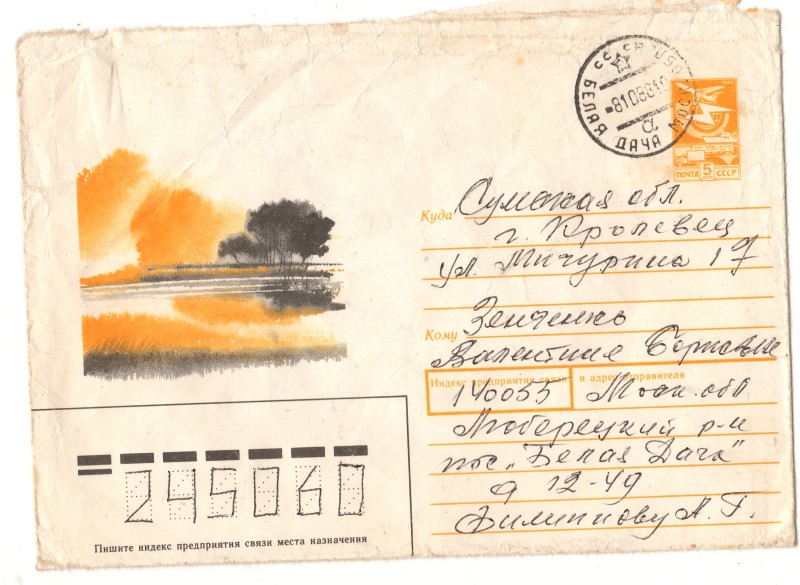 СССР
БЕЛАЯ ДАЧА МОСК
ПОЧТА 5 СССР
Куда Сумская обл.
г. Кролевец
ул. Мичурина 17
Кому Зенченко
Валентине
Индекс предприятия связи и адрес отправителя
140055 Моск. обл
Люберецкий р-н
пос. „Белая Дача"
д 12-49
А. Г.
245060
Пишите индекс предприятия связи места назначения